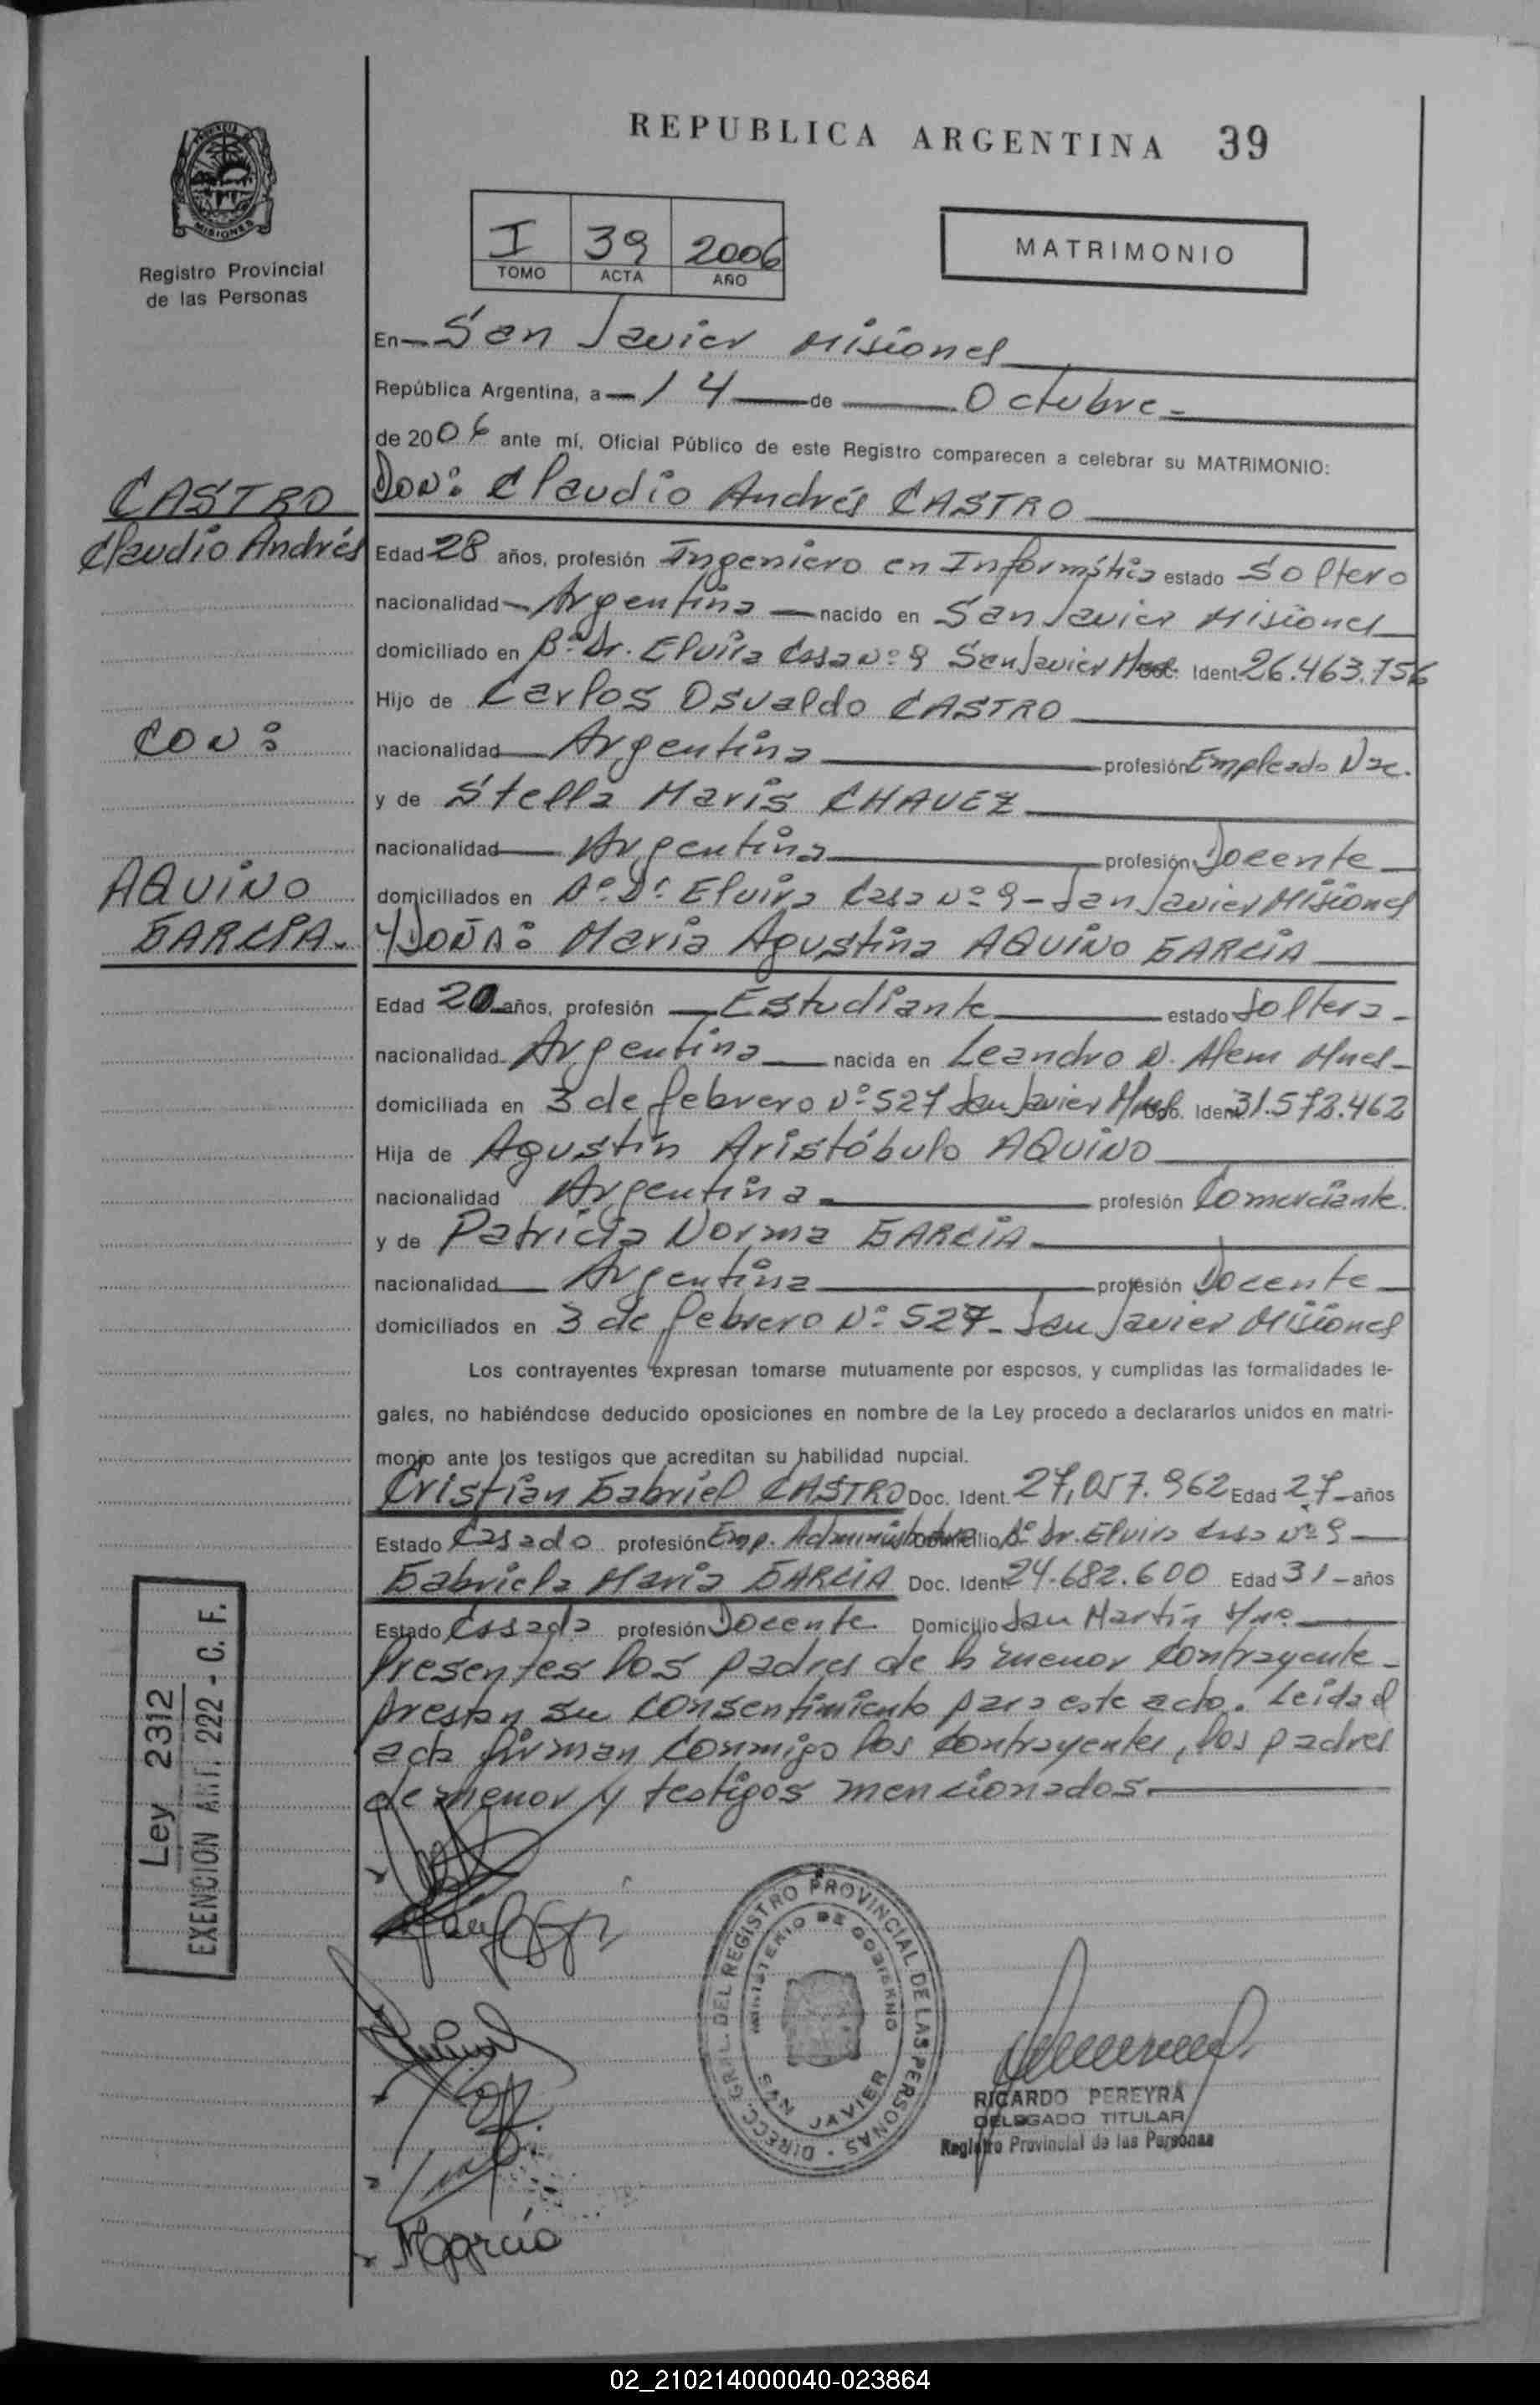 REPUBLICA ARGENTINA 39
MISIONES
Registro Provincial
de las Personas
I 39 2006
TOMO ACTA AÑO
MATRIMONIO
En San Javier Misiones
República Argentina, a 14 de Octubre
de 2006 ante mí, Oficial Público de este Registro comparecen a celebrar su MATRIMONIO:
CASTRO
Claudio Andrés
CON:
AQUINO
GARCIA.
DON: Claudio Andrés CASTRO
Edad 28 años, profesión Ingeniero en Informática estado Soltero
nacionalidad Argentina nacido en San Javier Misiones
domiciliado en B° Dr. Elvira Casa N° 9 San Javier Mnes. Doc. Ident. 26.463.756
Hijo de Carlos Osvaldo CASTRO
nacionalidad Argentina profesión Empleado Nac.
y de Stella Maris CHAVEZ
nacionalidad Argentina profesión Docente
domiciliados en B° Dr. Elvira Casa N° 9 - San Javier Misiones
Y DOÑA: Maria Agustina AQUINO GARCIA
Edad 20 años, profesión Estudiante estado Soltera
nacionalidad Argentina nacida en Leandro N. Alem Mnes
domiciliada en 3 de febrero N° 527 San Javier Mnes Doc. Ident. 31.573.462
Hija de Agustín Aristóbulo AQUINO
nacionalidad Argentina profesión Comerciante
y de Patricia Norma GARCIA
nacionalidad Argentina profesión Docente
domiciliados en 3 de febrero N° 527 - San Javier Misiones
Los contrayentes expresan tomarse mutuamente por esposos, y cumplidas las formalidades le-
gales, no habiéndose deducido oposiciones en nombre de la Ley procedo a declararlos unidos en matri-
monio ante los testigos que acreditan su habilidad nupcial.
Cristian Gabriel CASTRO Doc. Ident. 27,057.962 Edad 27 años
Estado Casado profesión Emp. Administrativo Domicilio B° Dr. Elvira Casa N° 9
Gabriela Maria GARCIA Doc. Ident. 24.682.600 Edad 31 años
Estado Casada profesión Docente Domicilio San Martín s/n°
Presentes los padres de la menor contrayente
prestan su consentimiento para este acto. Leida el
acta firman conmigo los contrayentes, los padres
de menor y testigos mencionados.
Ley 2312
EXENCION ART. 222 - C. F.
DIRECC. GRAL. DEL REGISTRO PROVINCIAL DE LAS PERSONAS
MINISTERIO DE GOBIERNO
SAN JAVIER
RICARDO PEREYRA
DELEGADO TITULAR
Registro Provincial de las Personas
MGarcia
02_210214000040-023864